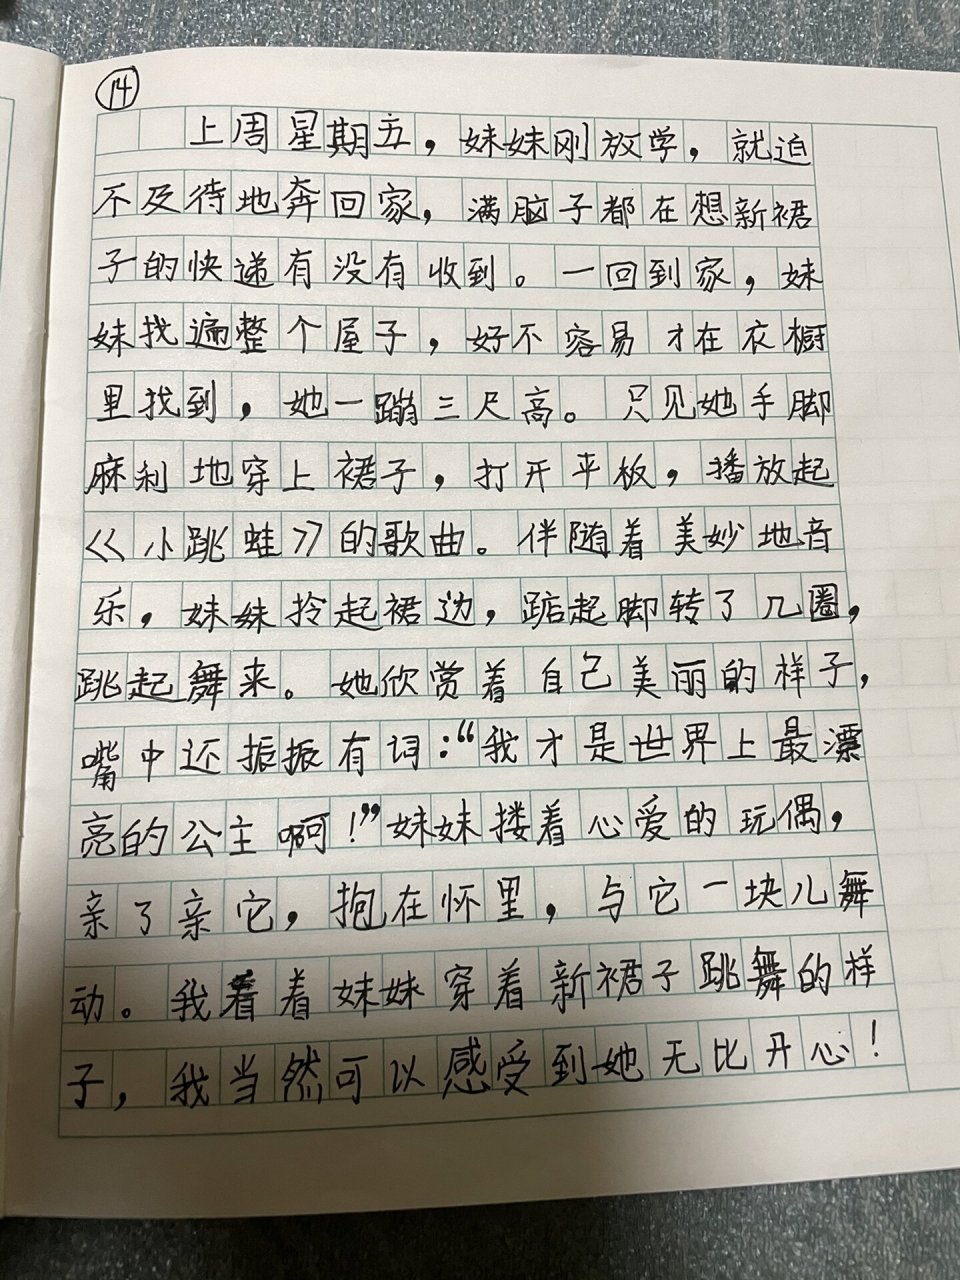 14
上周星期五，妹妹刚放学，就迫
不及待地奔回家，满脑子都在想新裙
子的快递有没有收到。一回到家，妹
妹找遍整个屋子，好不容易才在衣橱
里找到，她一蹦三尺高。只见她手脚
麻利地穿上裙子，打开平板，播放起
《小跳蛙》的歌曲。伴随着美妙地音
乐，妹妹拎起裙边，踮起脚转了几圈，
跳起舞来。她欣赏着自己美丽的样子，
嘴中还振振有词：“我才是世界上最漂
亮的公主啊！”妹妹搂着心爱的玩偶，
亲了亲它，抱在怀里，与它一块儿舞
动。我看着妹妹穿着新裙子跳舞的样
子，我当然可以感受到她无比开心！